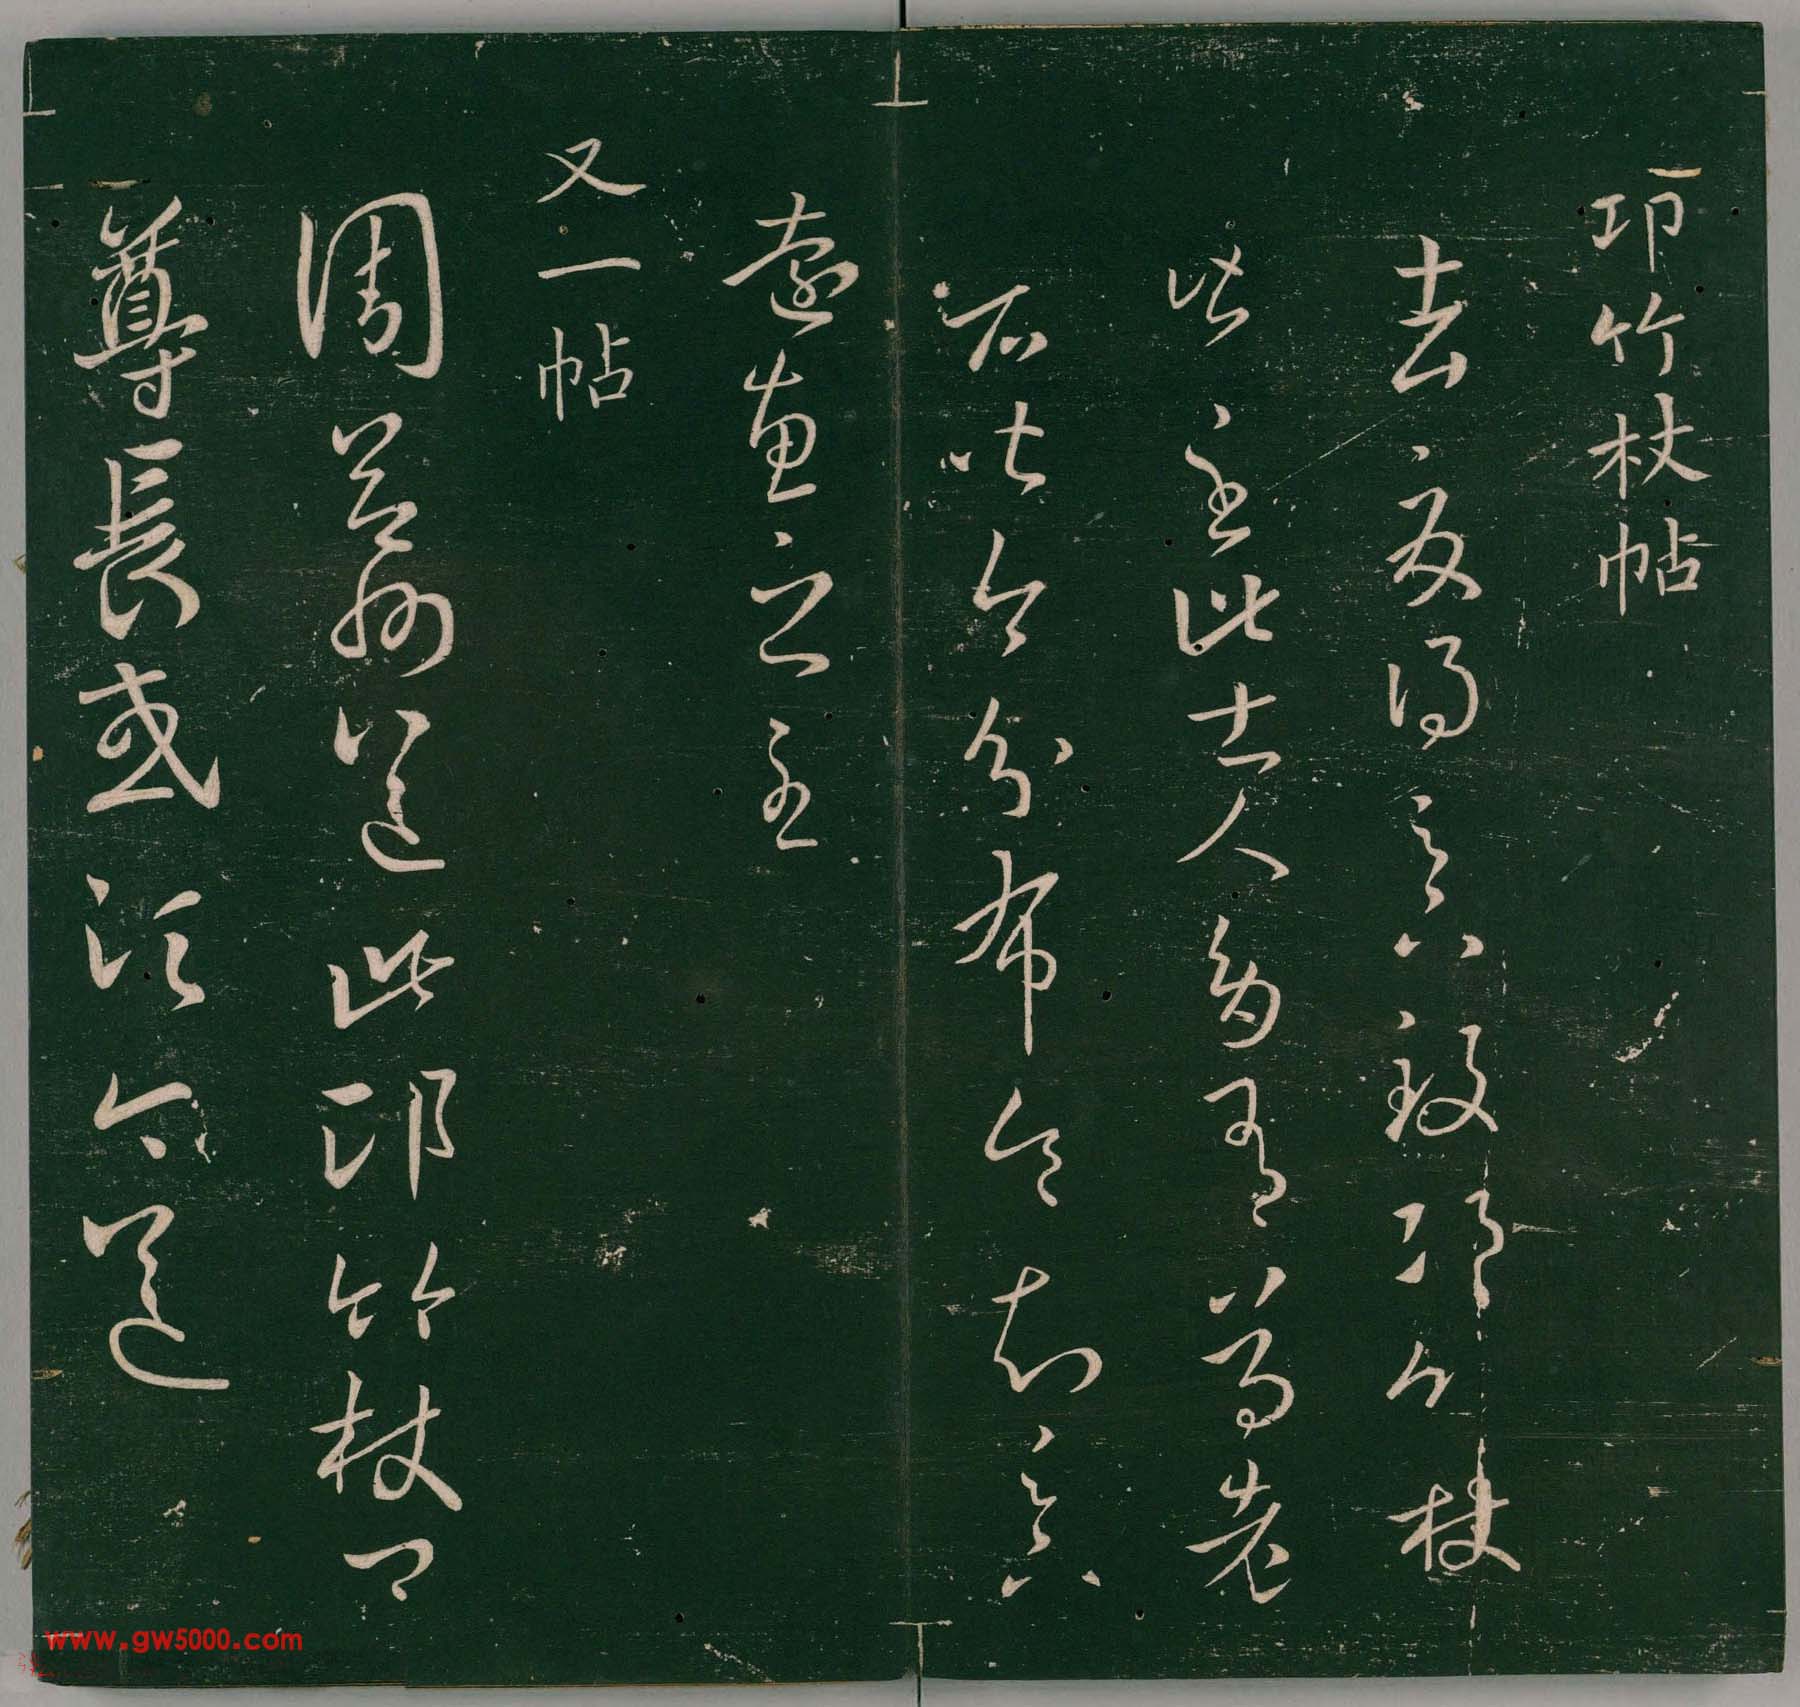 邛竹杖帖
去夏得足下致邛竹杖
皆至此士人多有尊老
者皆即分布令知足下
遠惠之至
又一帖
周益州送此邛竹杖卿
尊長或須今送
www.gw5000.com